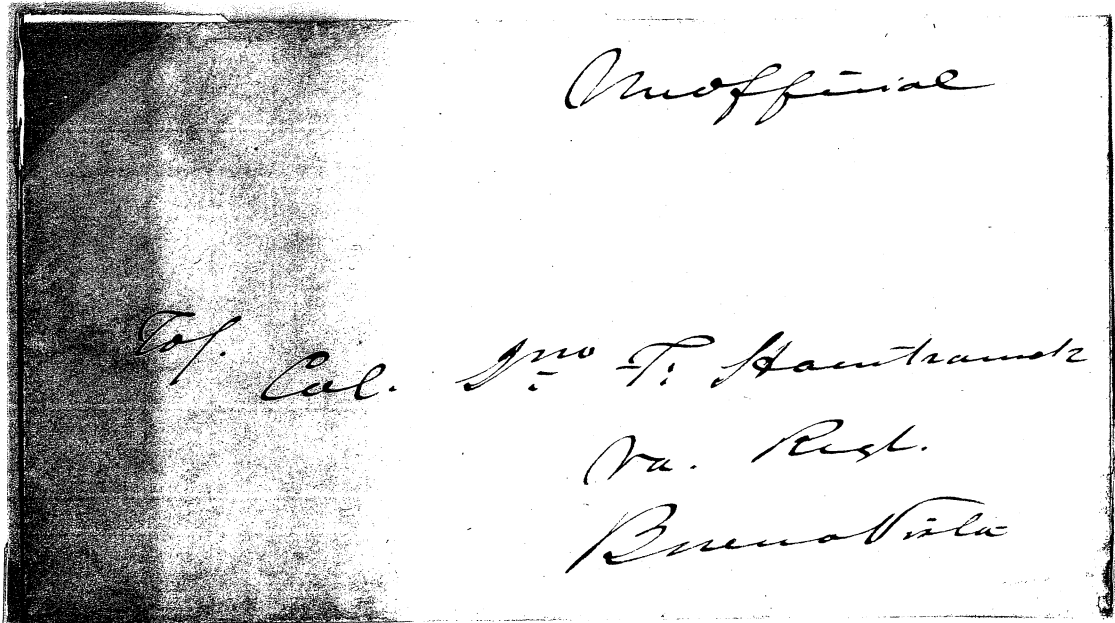 Unofficial
To/.
Col. Jno F: Hamtramck
Va. Regt.
Buena Vista